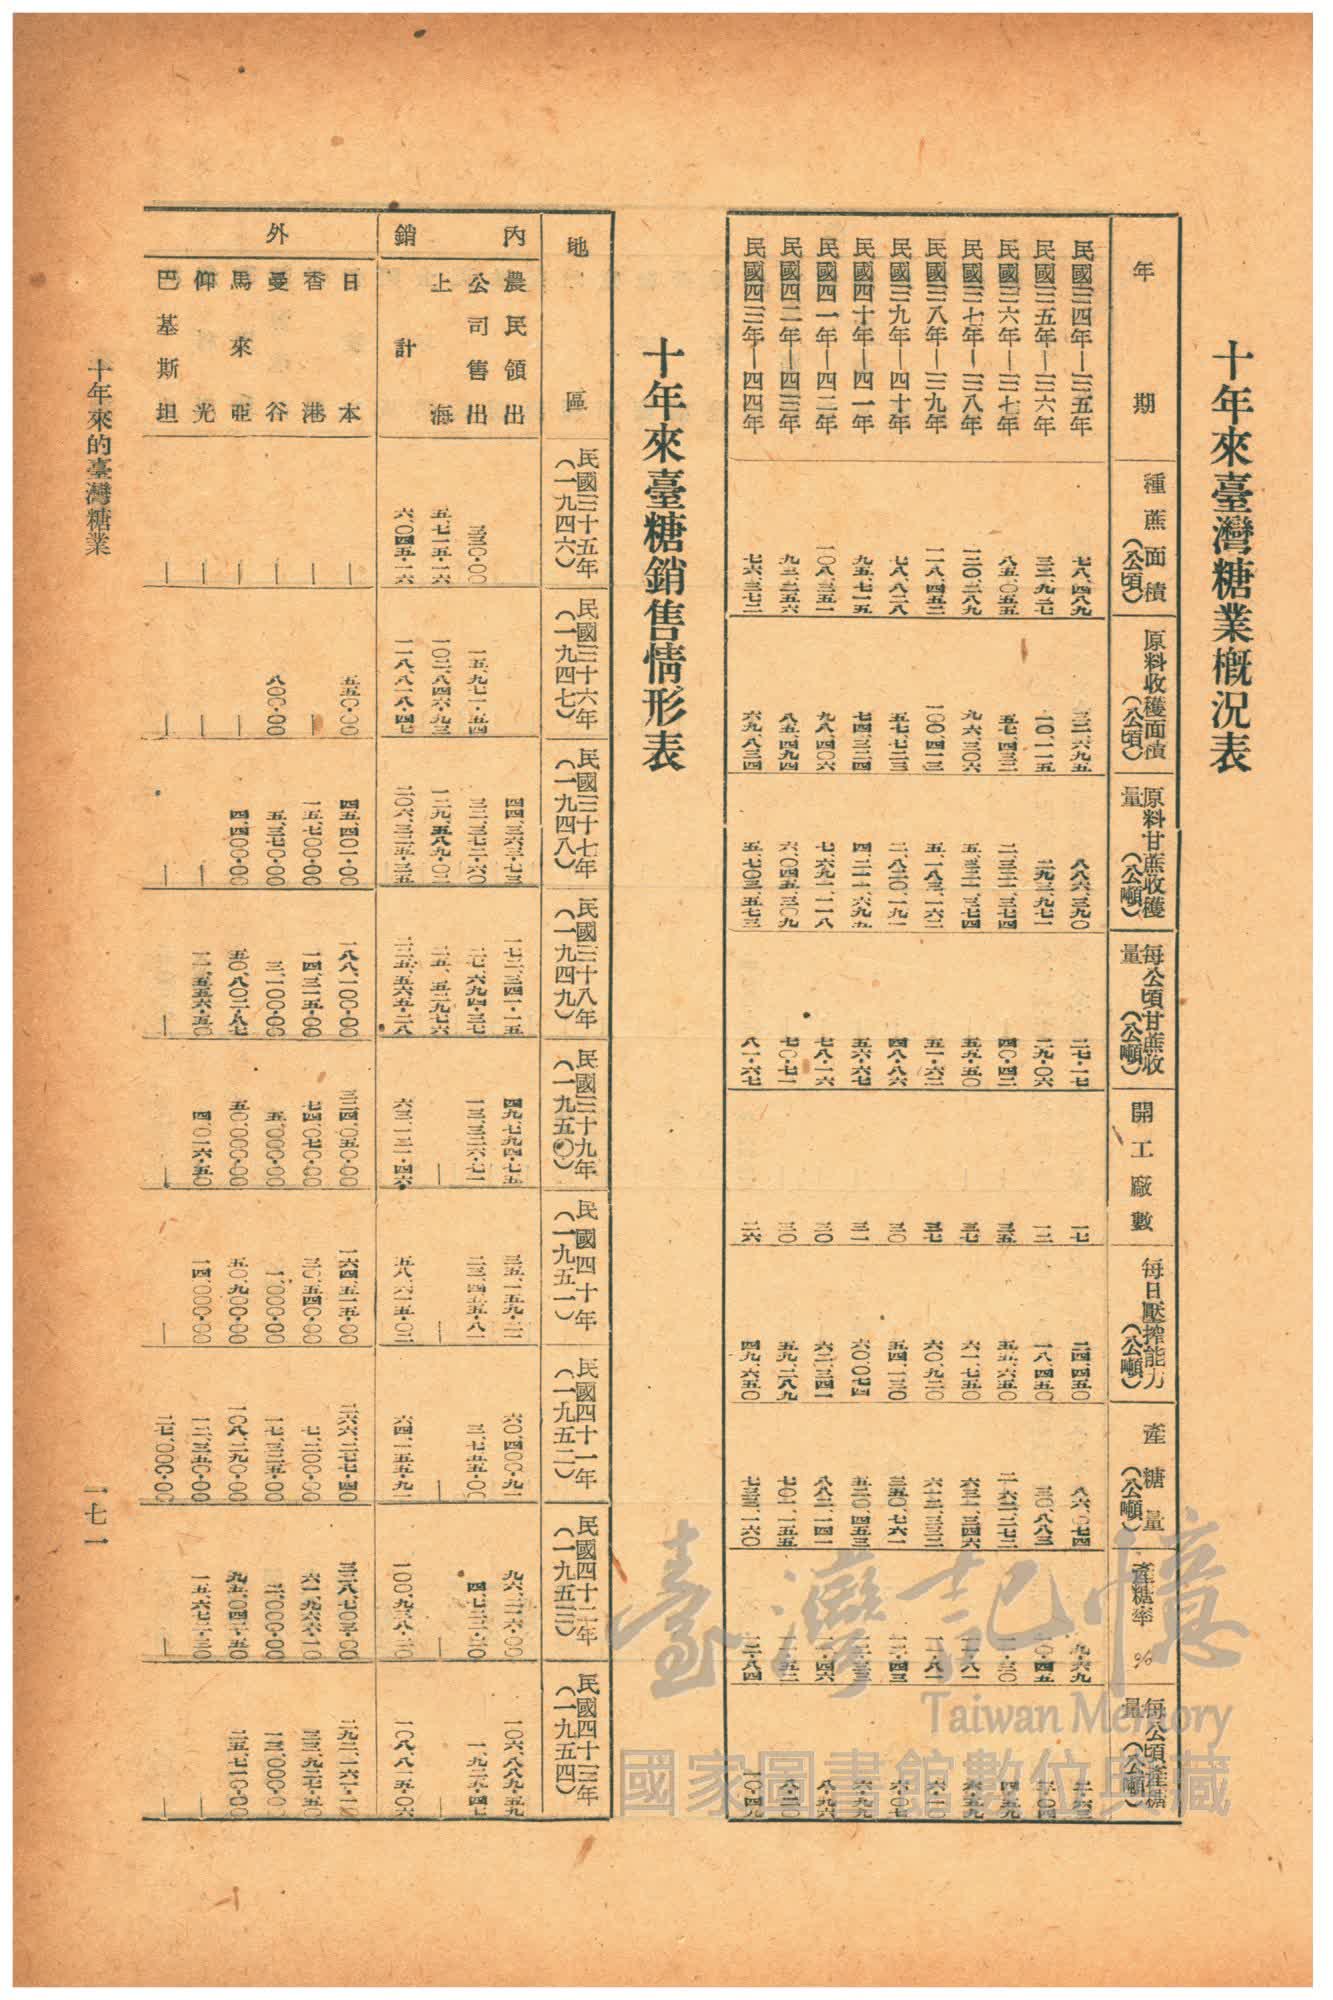 十年來臺灣糖業概況表
年期 種蔗面積(公頃) 原料收穫面積(公頃) 原料甘蔗收穫量(公噸) 每公頃甘蔗收量(公噸) 開工廠數 每日壓搾能力(公噸) 產糖量(公噸) 產糖率% 每公頃產糖量(公噸)
民國三四年—三五年 七八、四八九 三二、六九五 八八六、三九〇 二七·一七 一七 二四、四五〇 八六、〇七四 九·六九 二·六三
民國三五年—三六年 一〇、一一五 二九三、九七一 二九·〇六 一二 一八、四五〇 三〇、八八三 一〇·四五 三·〇四
民國三六年—三七年 八五、〇五五 五七、四三二 二、三二一、三七四 四〇·四二 三五 五五、六五〇 二六二、二七二 一一·三〇
民國三七年—三八年 一二〇、二八九 九六、三〇六 五五·五〇 三七 六一、七五〇 六三一、三四六 一一·八一
民國三八年—三九年 一一八、四五二 一〇〇、四一三 五、一八三、一六二 五一·六二 三七 六〇、九二〇 六一二、三三二 一一·八一 六·一〇
民國三九年—四十年 七八、八二八 五七、七二三 二、八二〇、一九一 四八·八六 三〇 五四、一三〇 三五〇、七六一 一二·四三 六·〇七
民國四十年—四一年 九五、七一五 七四、三二四 五六·六七 三一 六〇、〇七四 五二〇、四五三 六·九九
民國四一年—四二年 一〇八、三五一 九八、四〇六 七、六九二、一一八 七八·一六 三〇 六二、三四一 八八二、一四一 一一·四六 八·九六
民國四二年—四三年 九三、二五六 八五、四九四 六、〇四五、三〇九 七〇·七一 三〇 五九、二八九 七〇一、一五五 八·二〇
民國四三年—四四年 七六、三七二 六九、八三四 五、七〇三、五七三 八一·六七 二六 四九、六五〇 七三三、一六〇 一二·八四 一〇·四九
十年來臺糖銷售情形表
地區 民國三十五年(一九四六) 民國三十六年(一九四七) 民國三十七年(一九四八) 民國三十八年(一九四九) 民國三十九年(一九五〇) 民國四十年(一九五一) 民國四十一年(一九五二) 民國四十二年(一九五三) 民國四十三年(一九五四)
內銷
農民領出 四四、三六三·七三 一七二、三四一·一五 四九、七九四·七五 三五、一五九·二一 六〇、四〇〇·九一 九六、二一六·〇〇 一〇六、八八九·五九
公司售出 三三〇·〇〇 一五、九七一·五四 三二、三七二·六〇 二七、六九四·三七 一三、三三六·七一 二三、四五五·八一 三、七五五·〇〇 四、七二二·二〇 一、九二五·四七
上海 五、七一五·一六 一〇二、八四六·九三 一二九、五八九·〇二 二五、五二九·七六 — — —
計 六、〇四五·一六 一一八、八一八·四七 二〇六、三二五·三五 二二五、五六五·二八 六三、一三一·四六 五八、六一五·〇二 六四、一五五·九一 一〇〇、九三八·二〇 一〇八、八一五·〇六
外
日本 — 五五〇·〇〇 四五、四〇一·〇〇 一八八、一〇〇·〇〇 三二四、〇五〇·〇〇 一六四、五一五·〇〇 二六六、二七七·四〇 三三八、七〇三·〇〇 二九二、一六一·一〇
香港 — — 一五、七〇〇·〇〇 一四、三一五·〇〇 七四、〇七〇·〇〇 三〇、五四〇·〇〇 七、二〇〇·〇〇 六一、九六六·一〇 三三、九二七·五〇
曼谷 — 八〇〇·〇〇 五、三七〇·〇〇 三、一〇〇·〇〇 五、〇〇〇·〇〇 一、〇〇〇·〇〇 一七、三二五·〇〇 二、〇〇〇·〇〇 一三、〇〇〇·〇〇
馬來亞 — — 四、四〇〇·〇〇 五〇、八〇二·八七 五〇、〇〇〇·〇〇 五〇、九〇〇·〇〇 一〇八、二九〇·〇〇 九五、〇四二·五〇 二五、七一〇·〇〇
仰光 — — — 一一、五五六·五〇 四、〇一六·五〇 一四、〇〇〇·〇〇 一二、三五〇·〇〇 一五、六七二·三〇
巴基斯坦 — — — — — — 二七、〇〇〇·〇〇 —
十年來的臺灣糖業
一七一
臺灣記憶
Taiwan Memory
國家圖書館數位典藏